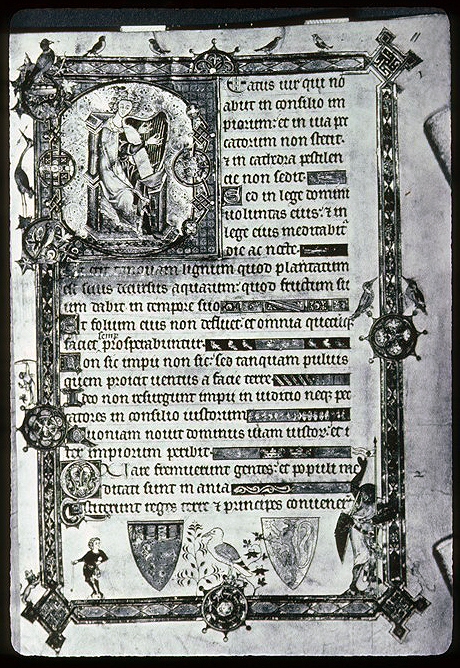 Eatus uir qui nō
abiit in consilio im
piorum: et in uia pe
catorum non stetit.
& in cathedra pestilen
cie non sedit.
Sed in lege domini
uoluntas eius: & in
lege eius meditabit̄
die ac nocte.
Et erit tanquam lignum quod plantatum
est secus decursus aquarum: quod fructum su
um dabit in tempore suo
Et folium eius non defluet: et omnia quecūq;
faciet semp prosperabuntur
Non sic impii non sic: sed tanquam puluis
quem proicit uentus a facie terre
Ideo non resurgunt impii in iudicio neq; pec
catores in consilio iustorum
Quoniam nouit dominus uiam iustor: et i
ter impiorum peribit.
Quare fremuerunt gentes: et populi me
ditati sunt inania
Astiterunt reges terre & principes conuener̄
11